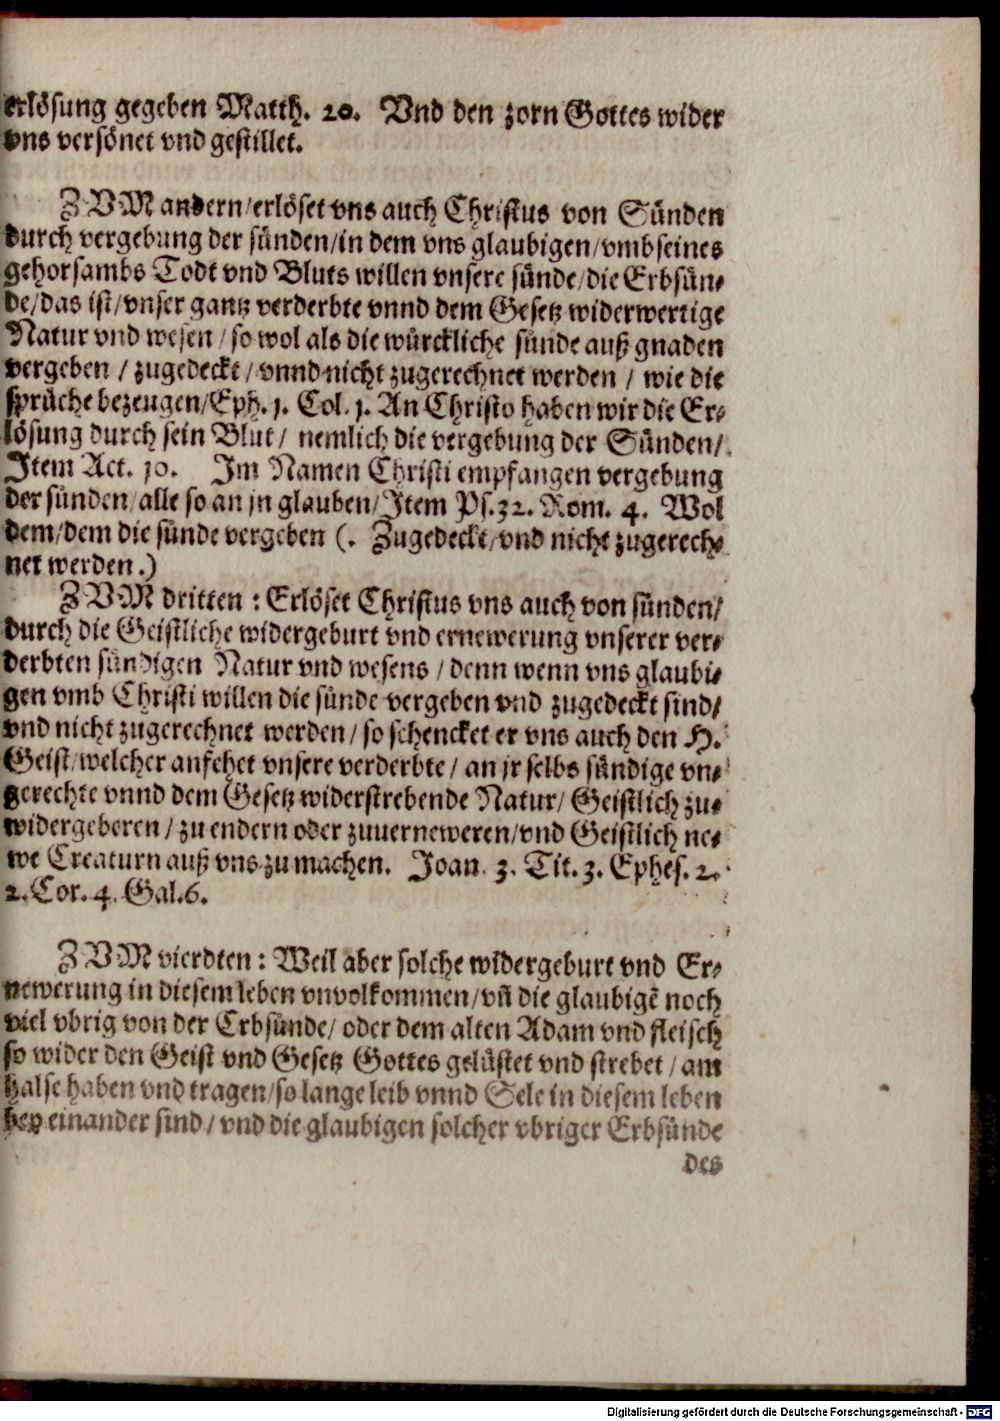 erlösung gegeben Matth. 20. Vnd den zorn Gottes wider
vns versönet vnd gestillet.
ZVM andern/erlöset vns auch Christus von Sünden
durch vergebung der sünden/in dem vns glaubigen/vmb seines
gehorsambs Todt vnd Bluts willen vnsere sünde/die Erbsün-
de/das ist/vnser gantz verderbte vnnd dem Gesetz widerwertige
Natur vnd wesen/so wol als die würckliche sünde auß gnaden
vergeben/zugedeckt/vnnd nicht zugerechnet werden/wie die
sprüche bezeugen/Eph. 1. Col. 1. An Christo haben wir die Er-
lösung durch sein Blut/nemlich die vergebung der Sünden/
Item Act. 10. Im Namen Christi empfangen vergebung
der sünden/alle so an jn glauben/Item Ps. 32. Rom. 4. Wol
dem/dem die sünde vergeben (. Zugedeckt/vnd nicht zugerech-
net werden.)
ZVM dritten: Erlöset Christus vns auch von sünden/
durch die Geistliche widergeburt vnd ernewerung vnserer ver-
derbten sündigen Natur vnd wesens/denn wenn vns glaubi-
gen vmb Christi willen die sünde vergeben vnd zugedeckt sind/
vnd nicht zugerechnet werden/so schencket er vns auch den H.
Geist/welcher anfehet vnsere verderbte/an jr selbs sündige vn-
gerechte vnnd dem Gesetz widerstrebende Natur/Geistlich zu-
widergeberen/zu endern oder zuuerneweren/vnd Geistlich ne-
we Creaturn auß vns zu machen. Joan. 3. Tit. 3. Ephes. 2.
2. Cor. 4. Gal. 6.
ZVM vierdten: Weil aber solche widergeburt vnd Er-
newerung in diesem leben vnvolkommen/vñ die glaubigẽ noch
viel vbrig von der Erbsünde/oder dem alten Adam vnd fleisch
so wider den Geist vnd Gesetz Gottes gelüstet vnd strebet/am
halse haben vnd tragen/so lange leib vnnd Sele in diesem leben
bey einander sind/vnd die glaubigen solcher vbriger Erbsünde
des
Digitalisierung gefördert durch die Deutsche Forschungsgemeinschaft - DFG